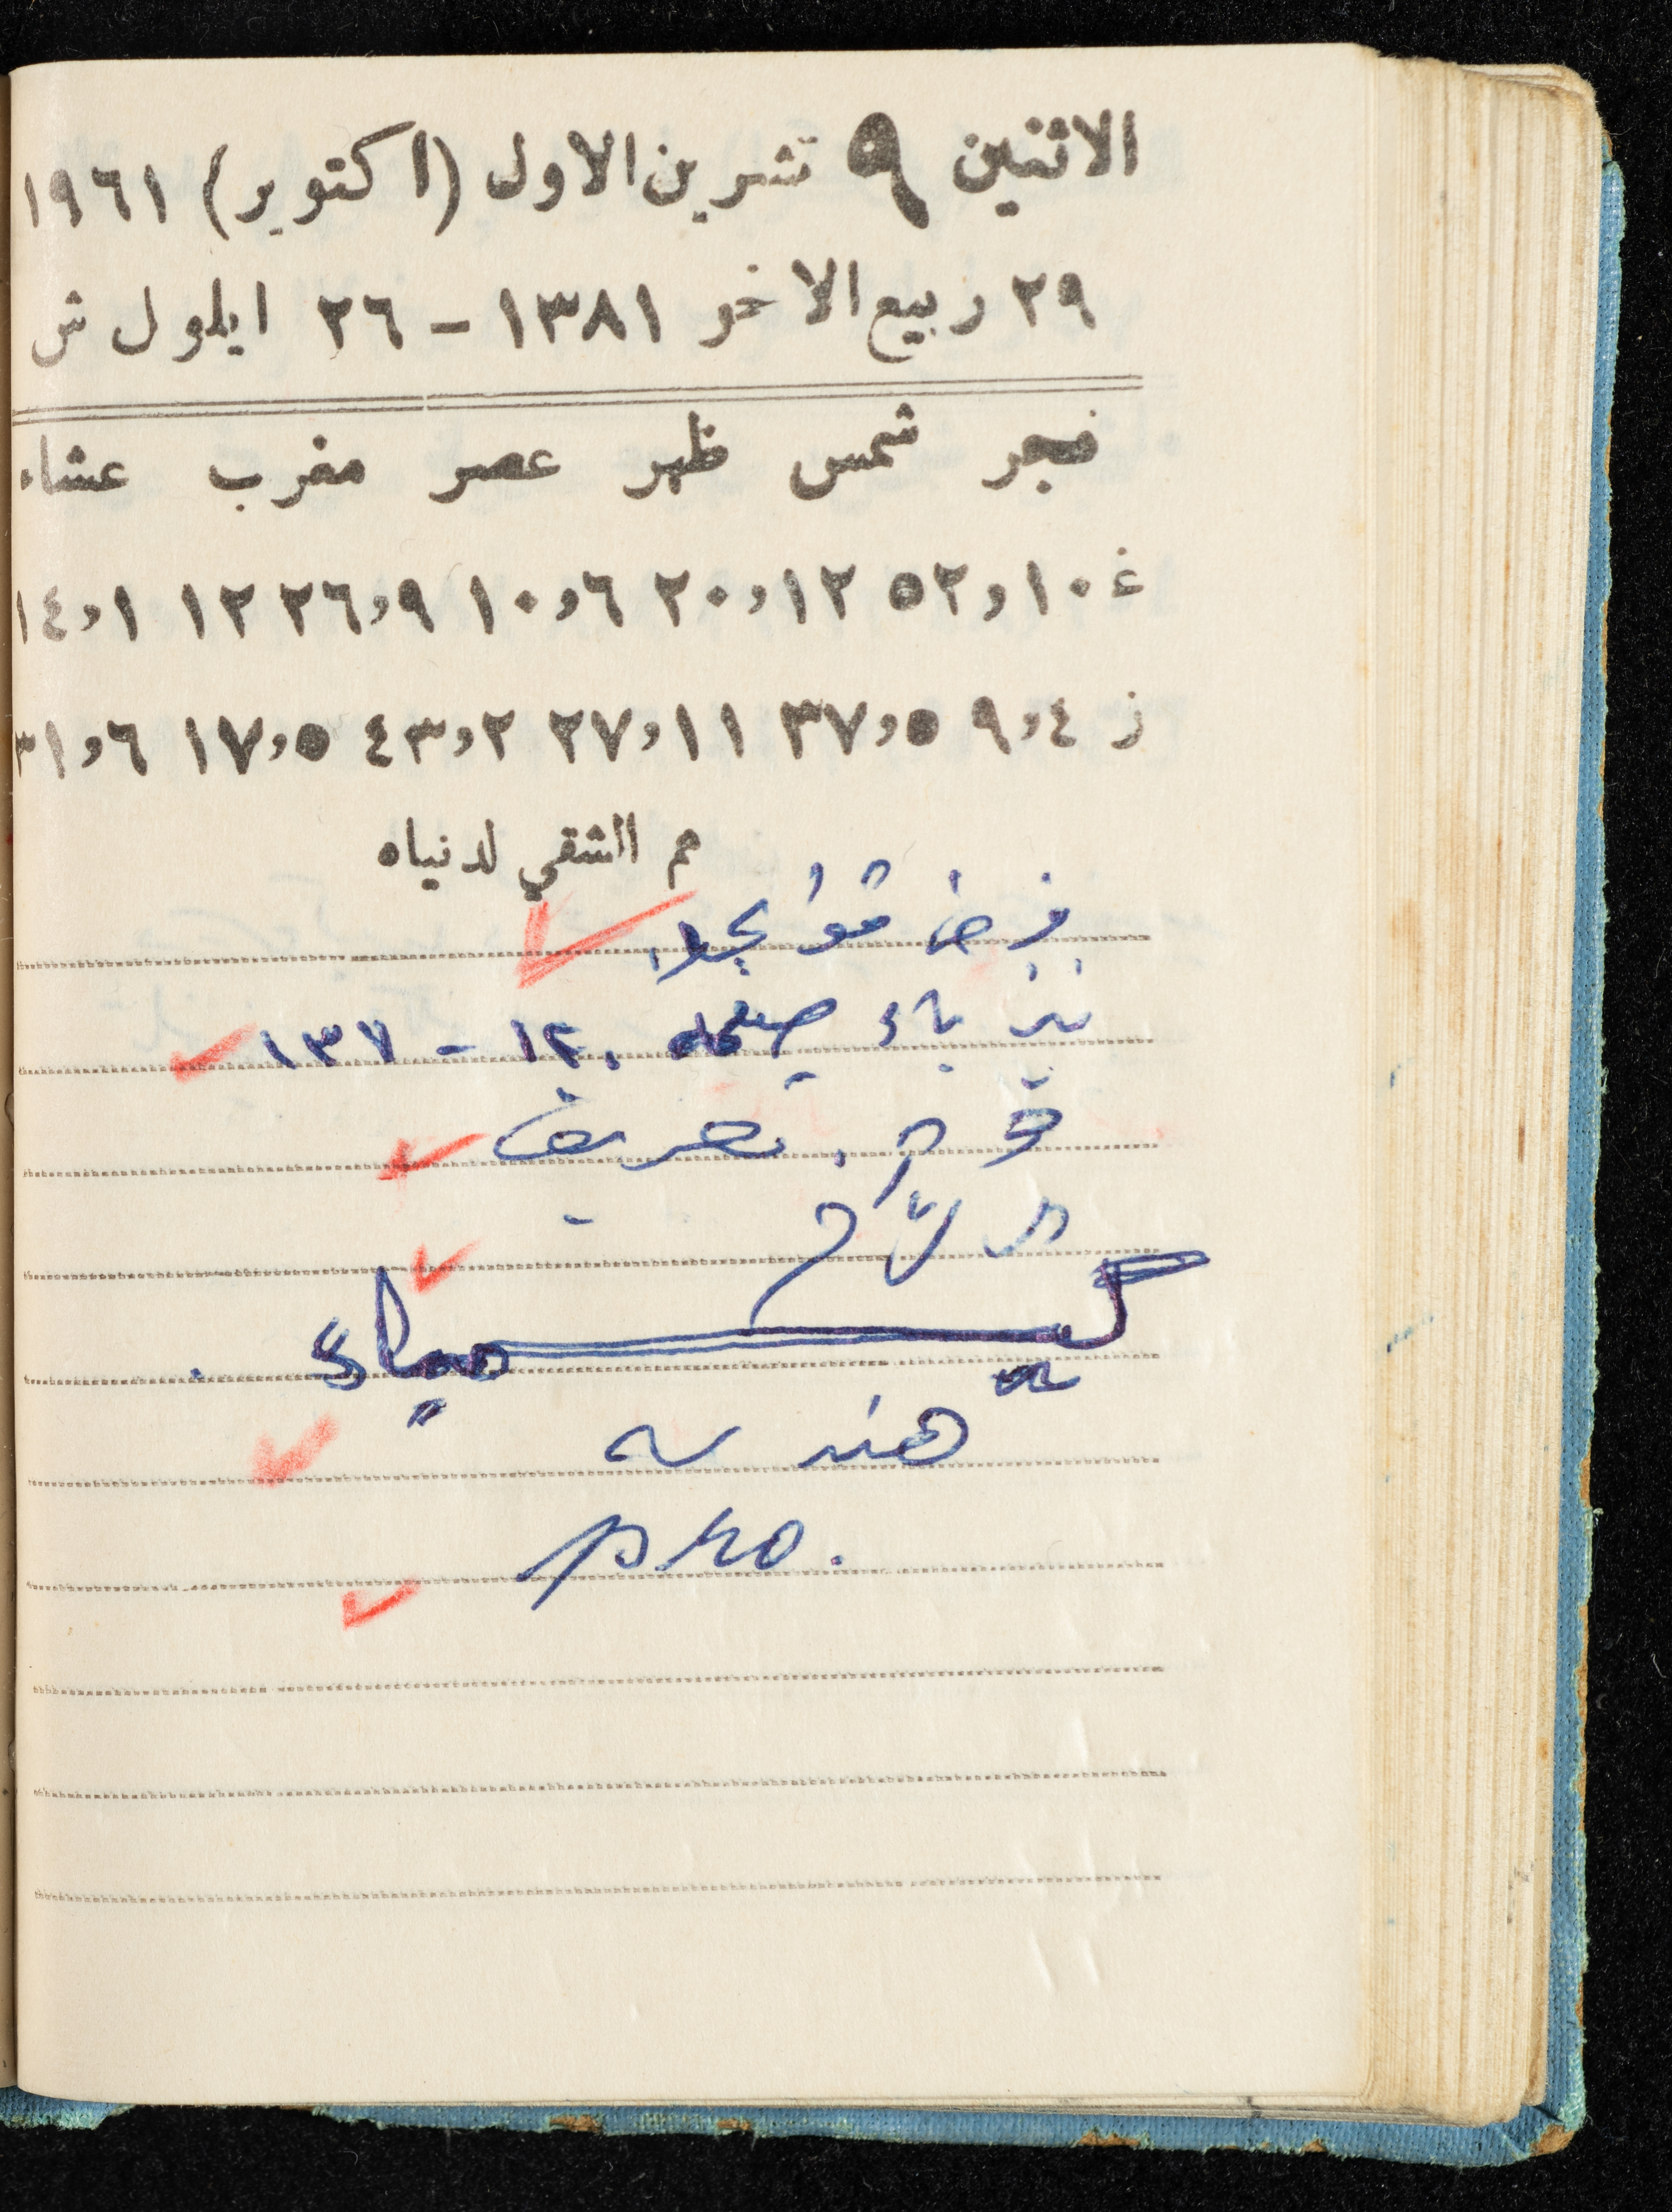 الاثنين ٩ تشرين الاول (اكتوبر) ١٩٦١
٢٩ ربيع الاخر ١٣٨١ - ٢٦ ايلول ش
فجر شمس ظهر عصر مغرب عشاء
غ ١٠،٥٢ ١٢،٢٠ ٦،١٠ ٩،٢٦ ١٢ ١،١٤
ز ٤،٩ ٥،٣٧ ١١،٢٧ ٢،٤٣ ٥،١٧ ٦،٣١
هم الشقي لدنياه
فرض
صفحه ١٢٠ - ١٣٧
تعريف
كيمياء
هندسه
pro.